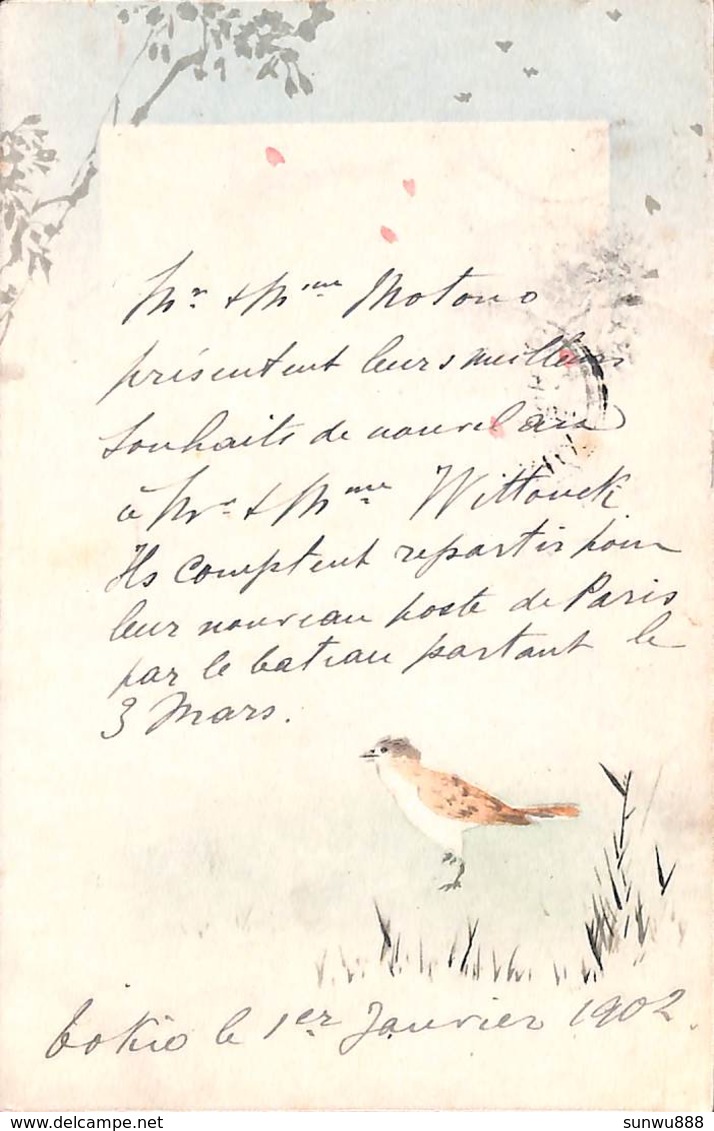 Mr & Mme Motono
présentent leurs meilleurs
souhaits de nouvel an
à Mr & Mme Wittouck
Ils comptent repartir pour
leur nouveau poste de Paris
par le bateau partant le
3 Mars.
Tokio le 1er Janvier 1902.
sunwu888